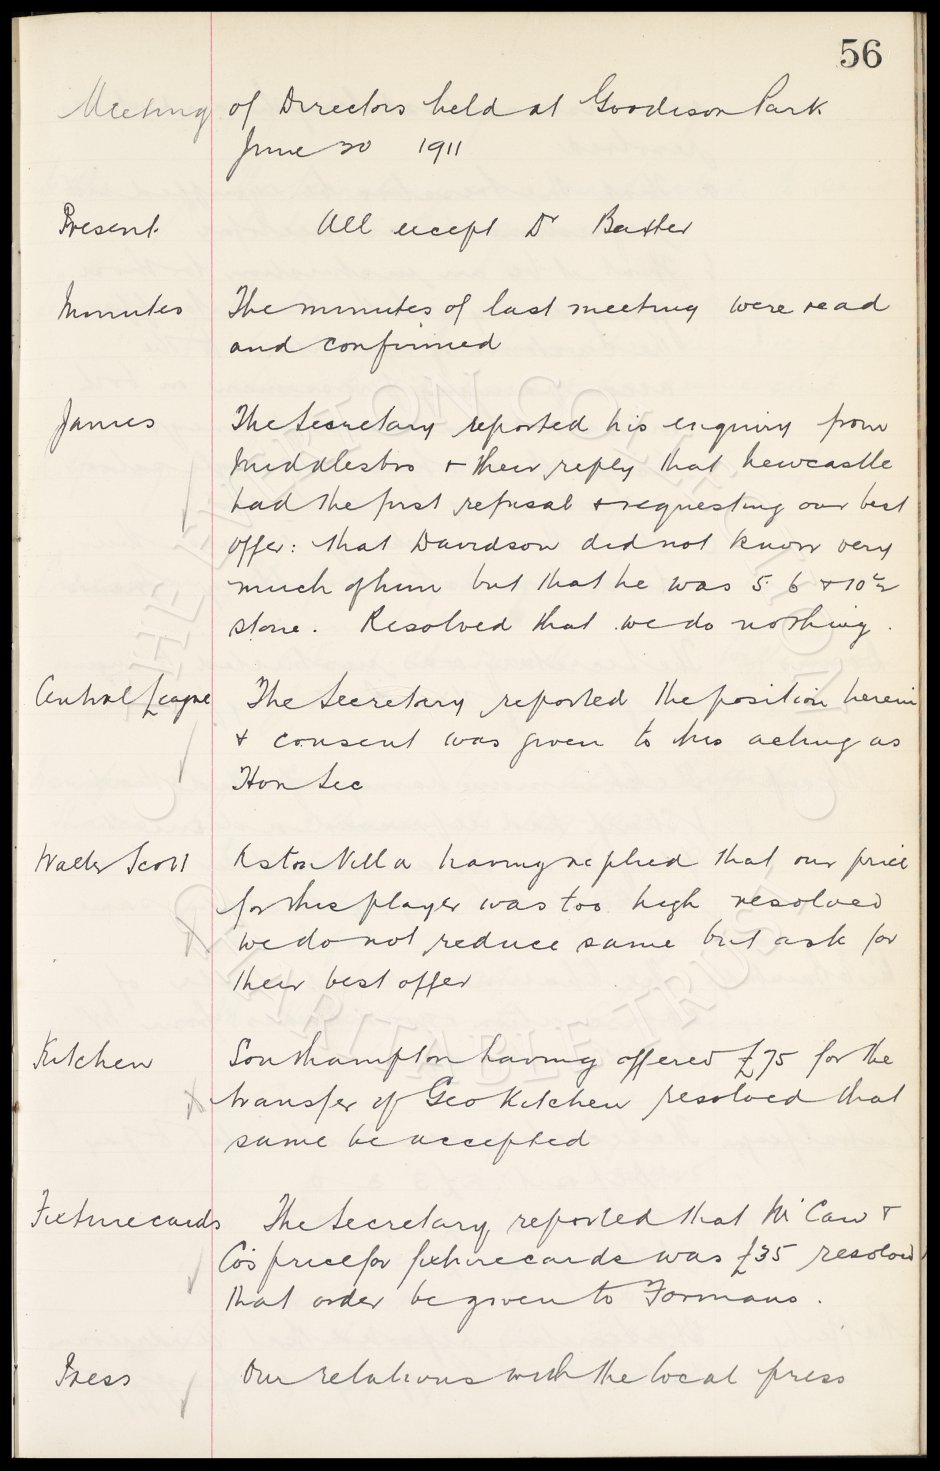 56
Meeting of Directors held at Goodison Park
June 20 1911
Present. All except Dr Baxter
Minutes The minutes of last meeting were read
and confirmed
James The Secretary reported his enquiry from
Middlesbro + their reply that Newcastle
had the first refusal + requesting our best
offer: that Davidson did not know very
much of him but that he was 5.6 + 10½
stone. Resolved that we do nothing.
Central League The Secretary reported the position herein
+ consent was given to his acting as
Hon Sec
Walter Scott Aston Villa having replied that our price
for this player was too high resolved
we do not reduce same but ask for
their best offer
Kitchen Southampton having offered £75 for the
transfer of Geo Kitchen resolved that
same be accepted
Fixture cards The Secretary reported that &
Co's price for fixture cards was £35 resolved
that order be given to Formans.
Press Our relations with the local press
THE EVERTON COLLECTION
CHARITABLE TRUST